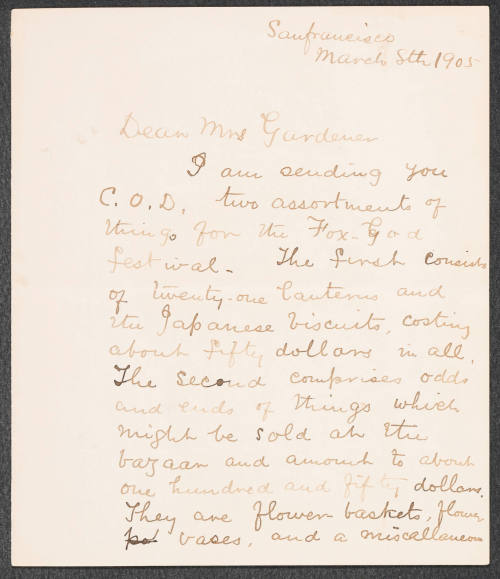 Sanfrancisco
March 8th 1905
Dear Mrs Gardener
I am sending you
C.O.D. two assortments of
things for the Fox-God
festival - The first consists
of twenty-one lanterns and
the Japanese biscuits, costing
about fifty dollars in all.
The second comprises odds
and ends of things which
might be sold at the
bazaar and amount to about
one hundred and fifty dollars.
They are flower baskets, flower
pot vases, and a miscellaneous